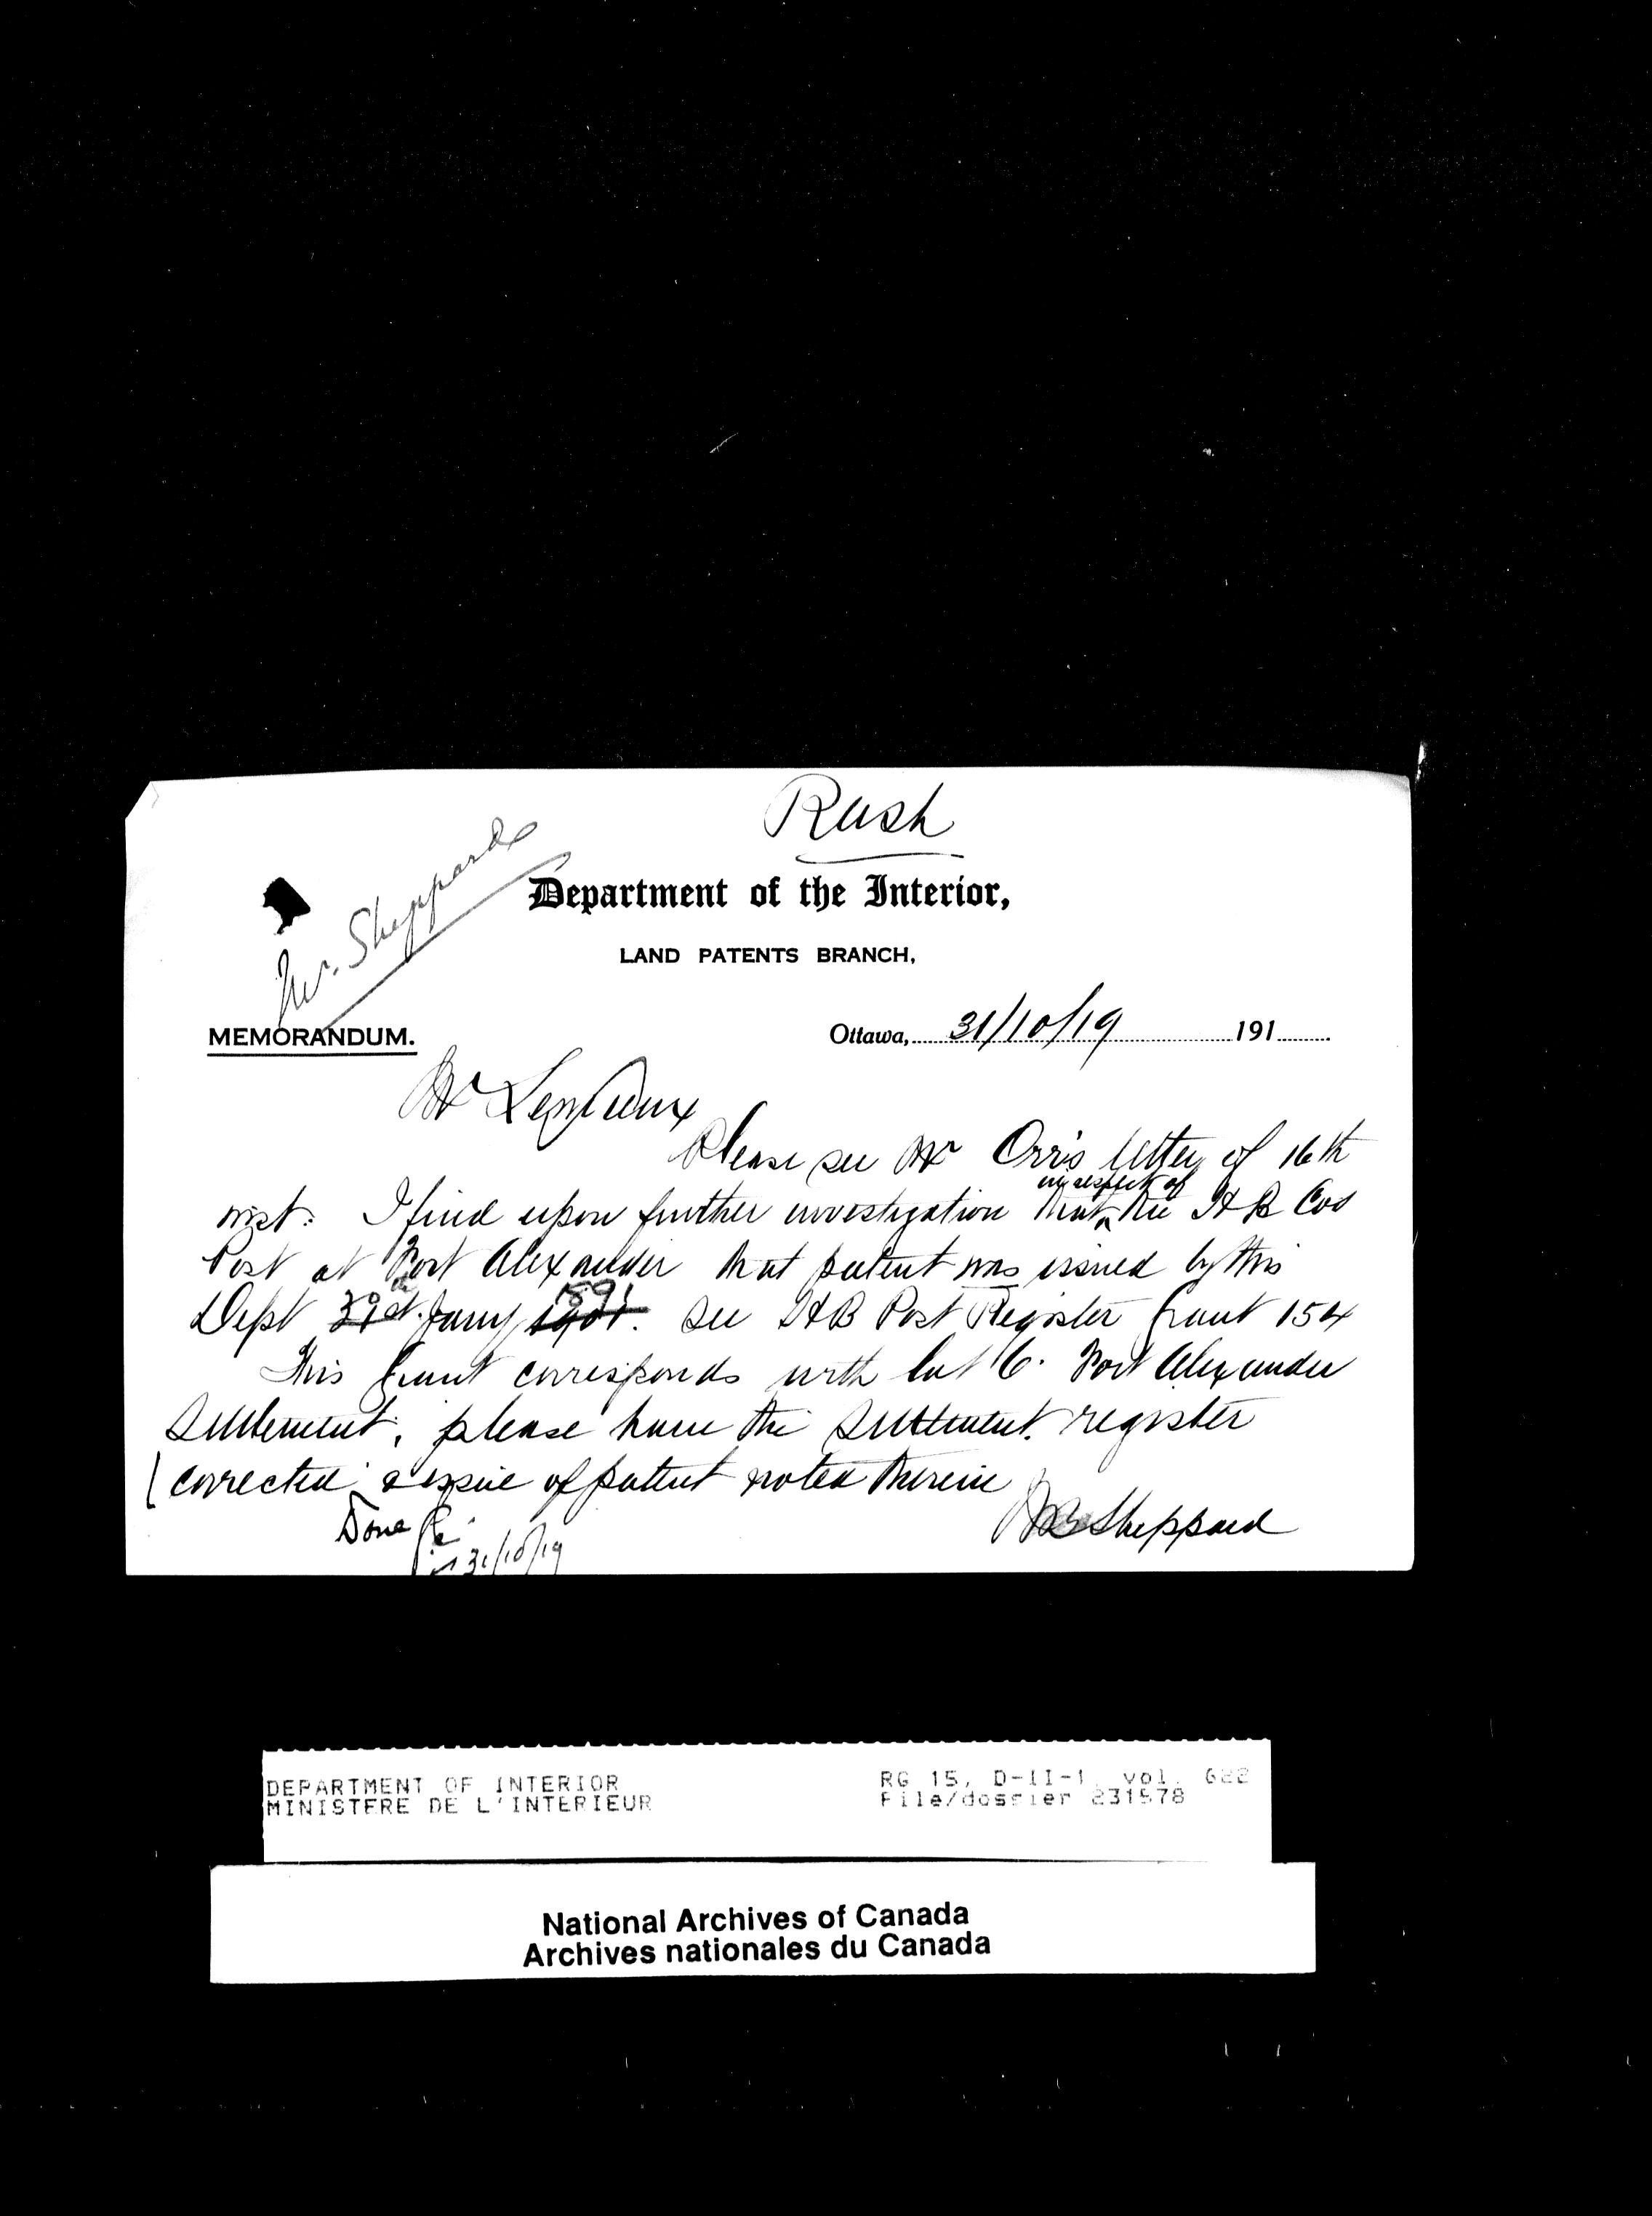 Rush
Mr. Sheppard
Department of the Interior,
LAND PATENTS BRANCH,
MEMORANDUM.
Ottawa, 31/10/19 191
Mr Lemieux
Please see Mr Orr's letter of 16th
inst. I find upon further investigation that in respect of the H B Cos
Post at Fort Alexander that patent was issued by this
Dept Jany 1891. See H B Post Register Grant 154
This Grant corresponds with lot 6. Fort Alexander
Settlement, please have the Settlement register
corrected & issue of patent noted therein
Sheppard
Done
31/10/19
DEPARTMENT OF INTERIOR
MINISTERE DE L'INTERIEUR
RG 15, D-II-1, vol. 622
File/dossier 231578
National Archives of Canada
Archives nationales du Canada